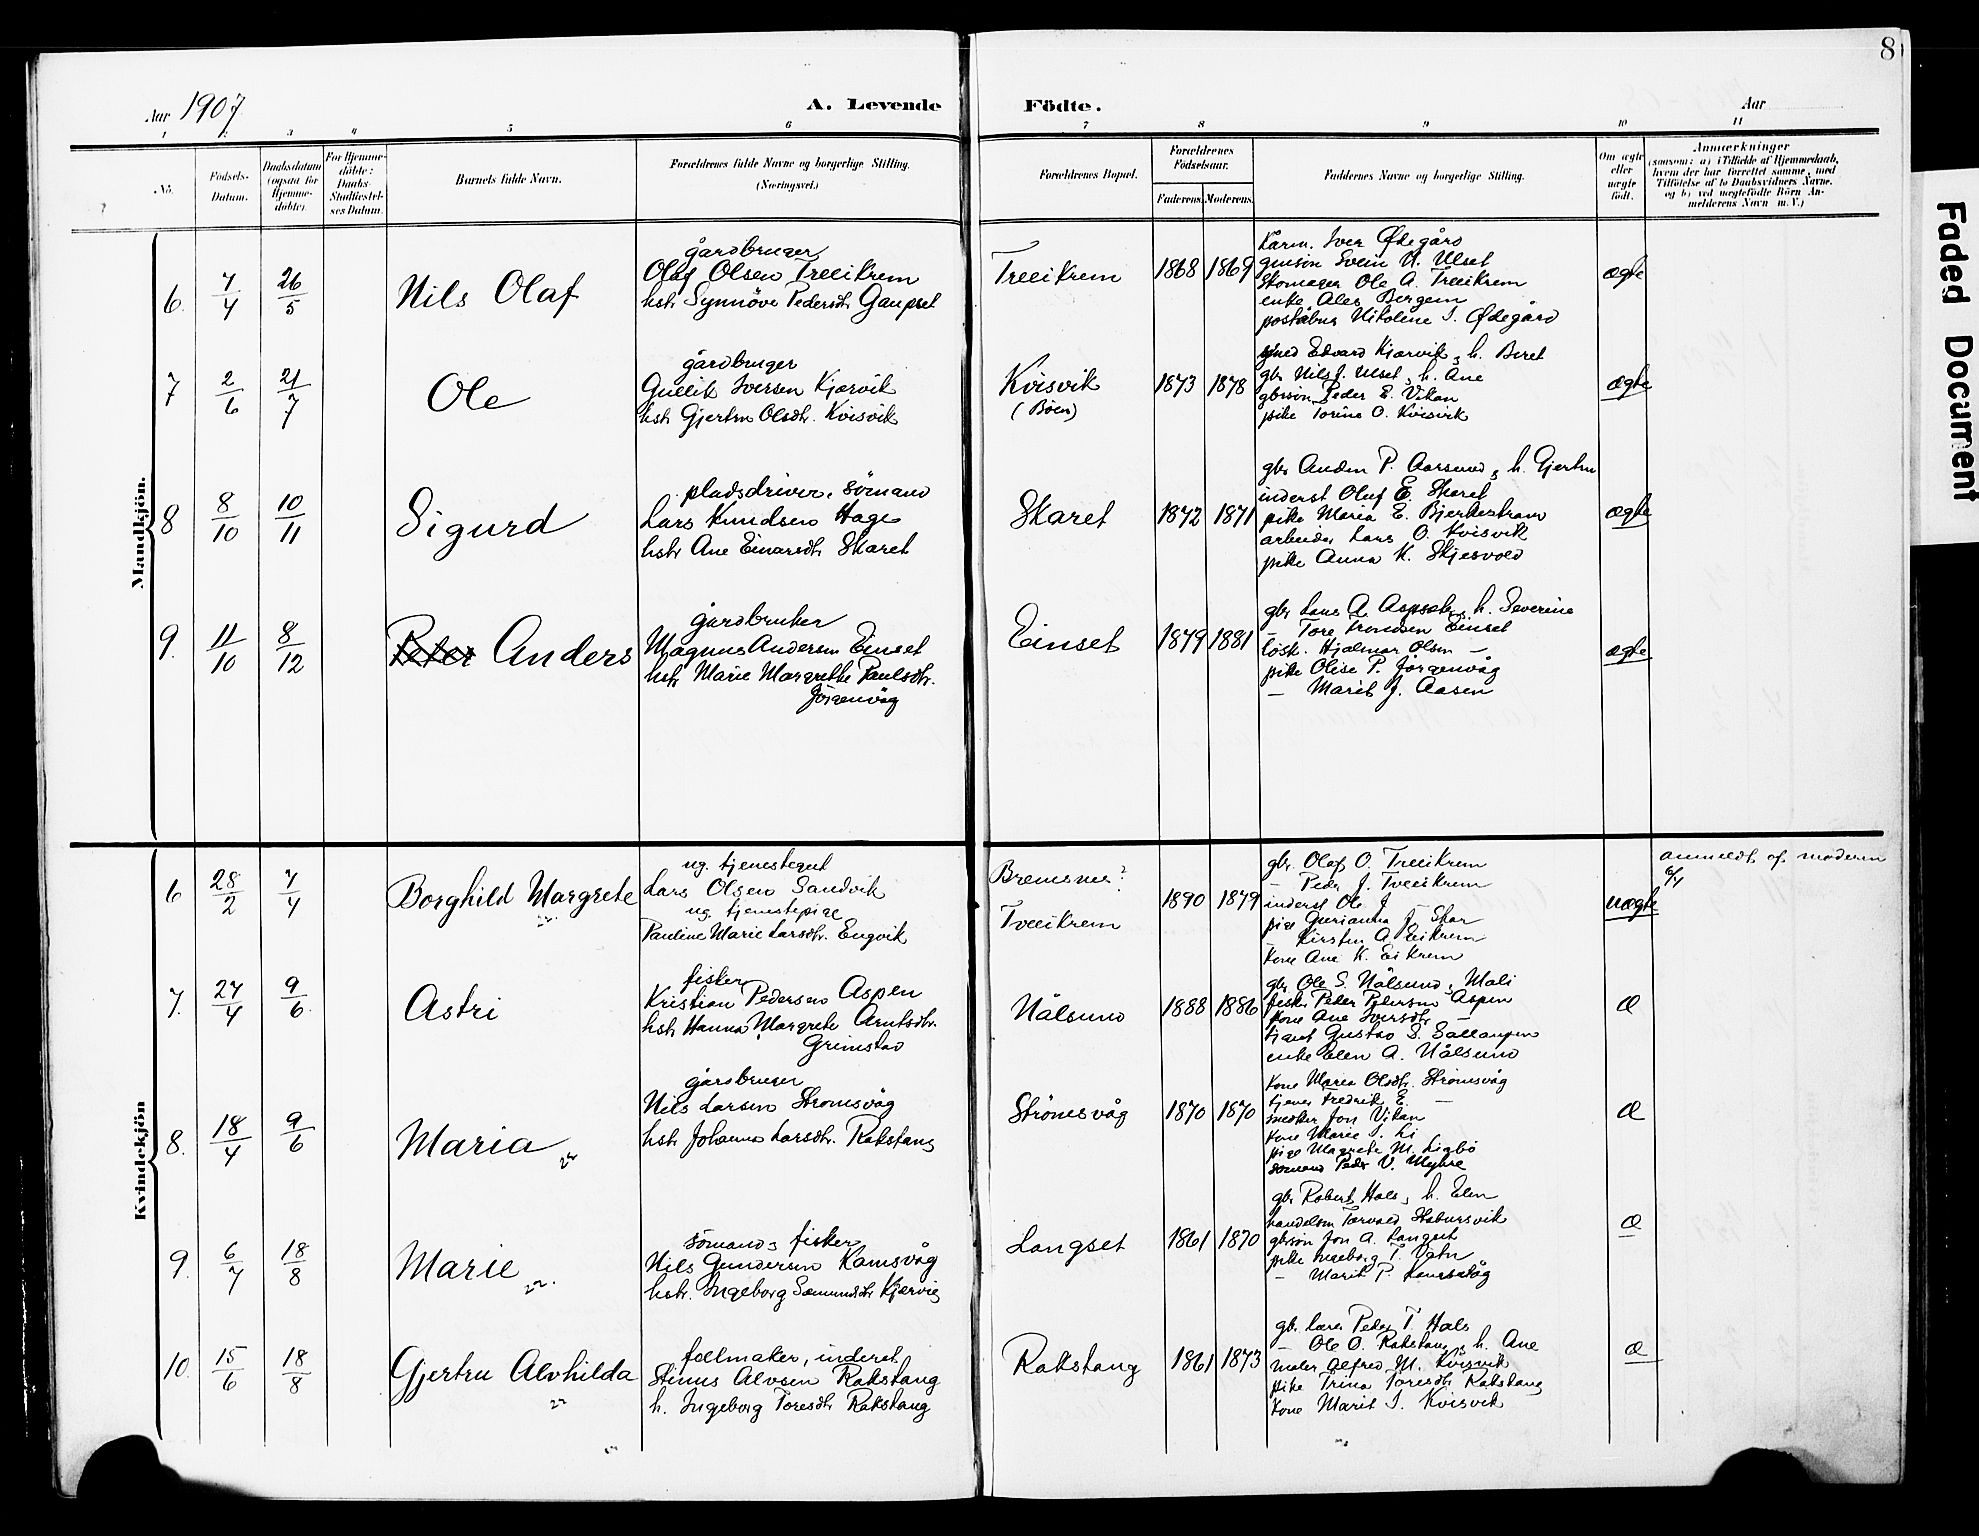 8
Aar 1907
A. Levende Födte.
Aar
1 2 3 4 5 6 7 8 9 10 11
No.
Födsels-Datum.
Daabsdatum (ogsaa for Hjemme-döbte).
For Hjemme-döbte: Daabs-Stadfæstel-ses Datum.
Barnets fulde Navn.
Forældrenes fulde Navne og borgerlige Stilling. (Næringsvei.)
Forældrenes Bopæl.
Forældrenes Födselsaar.
Faderens. Moderens.
Faddernes Navne og borgerlige Stilling.
Om ægte eller uægte født.
Anmærkninger
(saasom: a) i Tilfælde af Hjemmedaab, hvem der har forrettet samme, med Tilföielse af to Daabsvidners Navne. og b) ved uægtefödte Börn An-melderens Navn m. V.)
Mandkjön.
6. 7/4 26/5 Nils Olaf
gårdbruger
Olaf Olsen Treeikrem
hstr. Synnöve Pedersdtr. Gaupset
Treeikrem 1868 1869
Iver Ødegård
Svein Ulset
Skomager Ole A. Treeikrem
enke Ales Bergem
Nikoline I. Ødegård
ægte
7 2/6 21/7 Ole
gårdbruger
Gullik Iversen Kjørvik
hstr. Gjertru Olsdtr. Kvisvik
Kvisvik
(Böen)
1873 1878
Edvard Kjørvik, h. Beret
gbr Nils J. Ulset, h. Ane
gbrsön Peder E. Vikan
pike Torine O. Kvisvik
ægte
8 8/10 10/11 Sigurd
pladsdriver, sömand
Lars Knudsen Hage
hstr Ane Einarsdtr Skaret
Skaret 1872 1871
gbr Anders P. Aarsund, h. Gjertru
inderst Oluf E. Skaret
pike Maria E. Bjerkestrand
arbeider Lars O. Kvisvik
pike Anna K. Skjesvold
ægte
9. 11/10 8/12 Peter Anders
gårdbruker
Magnus Andersen Einset
hstr Marie Margrethe Paulsdtr.
Jörgenvåg
Einset 1879 1881
gbr Lars A. Aspset, h. Severine
– Tore Trondsen Einset
lösk. Hjalmar Olsen –
pike Olise P. Jörgenvåg
– Marit J. Aasen
ægte
Kvindekjön
6 28/2 7/4 Borghild Margrete
ug. tjenestegut
Lars Olsen Sandvik
ug. tjenestepige
Pauline Marie Larsdtr. Engvik
Bremsnes?
Tveeikrem
1890 1879
gbr. Olaf O. Treeikrem
– Peder J. Tveeikrem
inderst Ole J –
pige Gurianna J. Skar
– Kirsten A. Eikrem
kone Ane K. Eikrem
uægte
anmeldt af moderen
6/4
7. 27/4 9/6. Astri
fisker
Kristian Pedersen Aspen
hstr Hanna Margrete Arntsdtr.
Grimstad
Nålsund 1888 1886
gbr. Ole S. Nålsund, Mali
fisker Peder Pedersen Aspen
kone Ane Iversdtr –
enke Elen A. Nålsund
Æ
8. 18/4 9/6 Maria
gårdbruger
Nils Larsen Strömsvåg
hstr Johanna Larsdtr. Rakstang
Strömsvåg 1870 1870
kone Maria Olsdtr. Strömsvåg
tjener Fredrik E. –
snedker Jon Vikan
kone Marie I. Li
pige Magrete M. Ligbö
sömand Peder V. Myhre
Æ
9. 6/7 18/8 Marie
sömand, fisker
Nils Gundersen Kamsvåg
hstr. Ingeborg Sæmundsdtr Kjørvig
Langset 1861 1870
gbr Robert Hals, h. Elen
handelsm Torvald Stabursvik
gbrsön Jon A. Langset
pike Ingeborg T. Vatn
– Marit P.
Æ
10. 15/6 18/8 Gjertru Alvhilda
fællmaker, inderst
Stinus Alvsen Rakstang
h. Ingeborg Toresdtr Rakstang
Rakstang 1861 1873
gbr. Lars Peder T. Hals
– Ole O. Rakstang, h. Ane
maler Alfred M. Kvisvik
pike Trina Toresdtr Rakstang
kone Marit I. Kvisvik
Æ
Faded Document